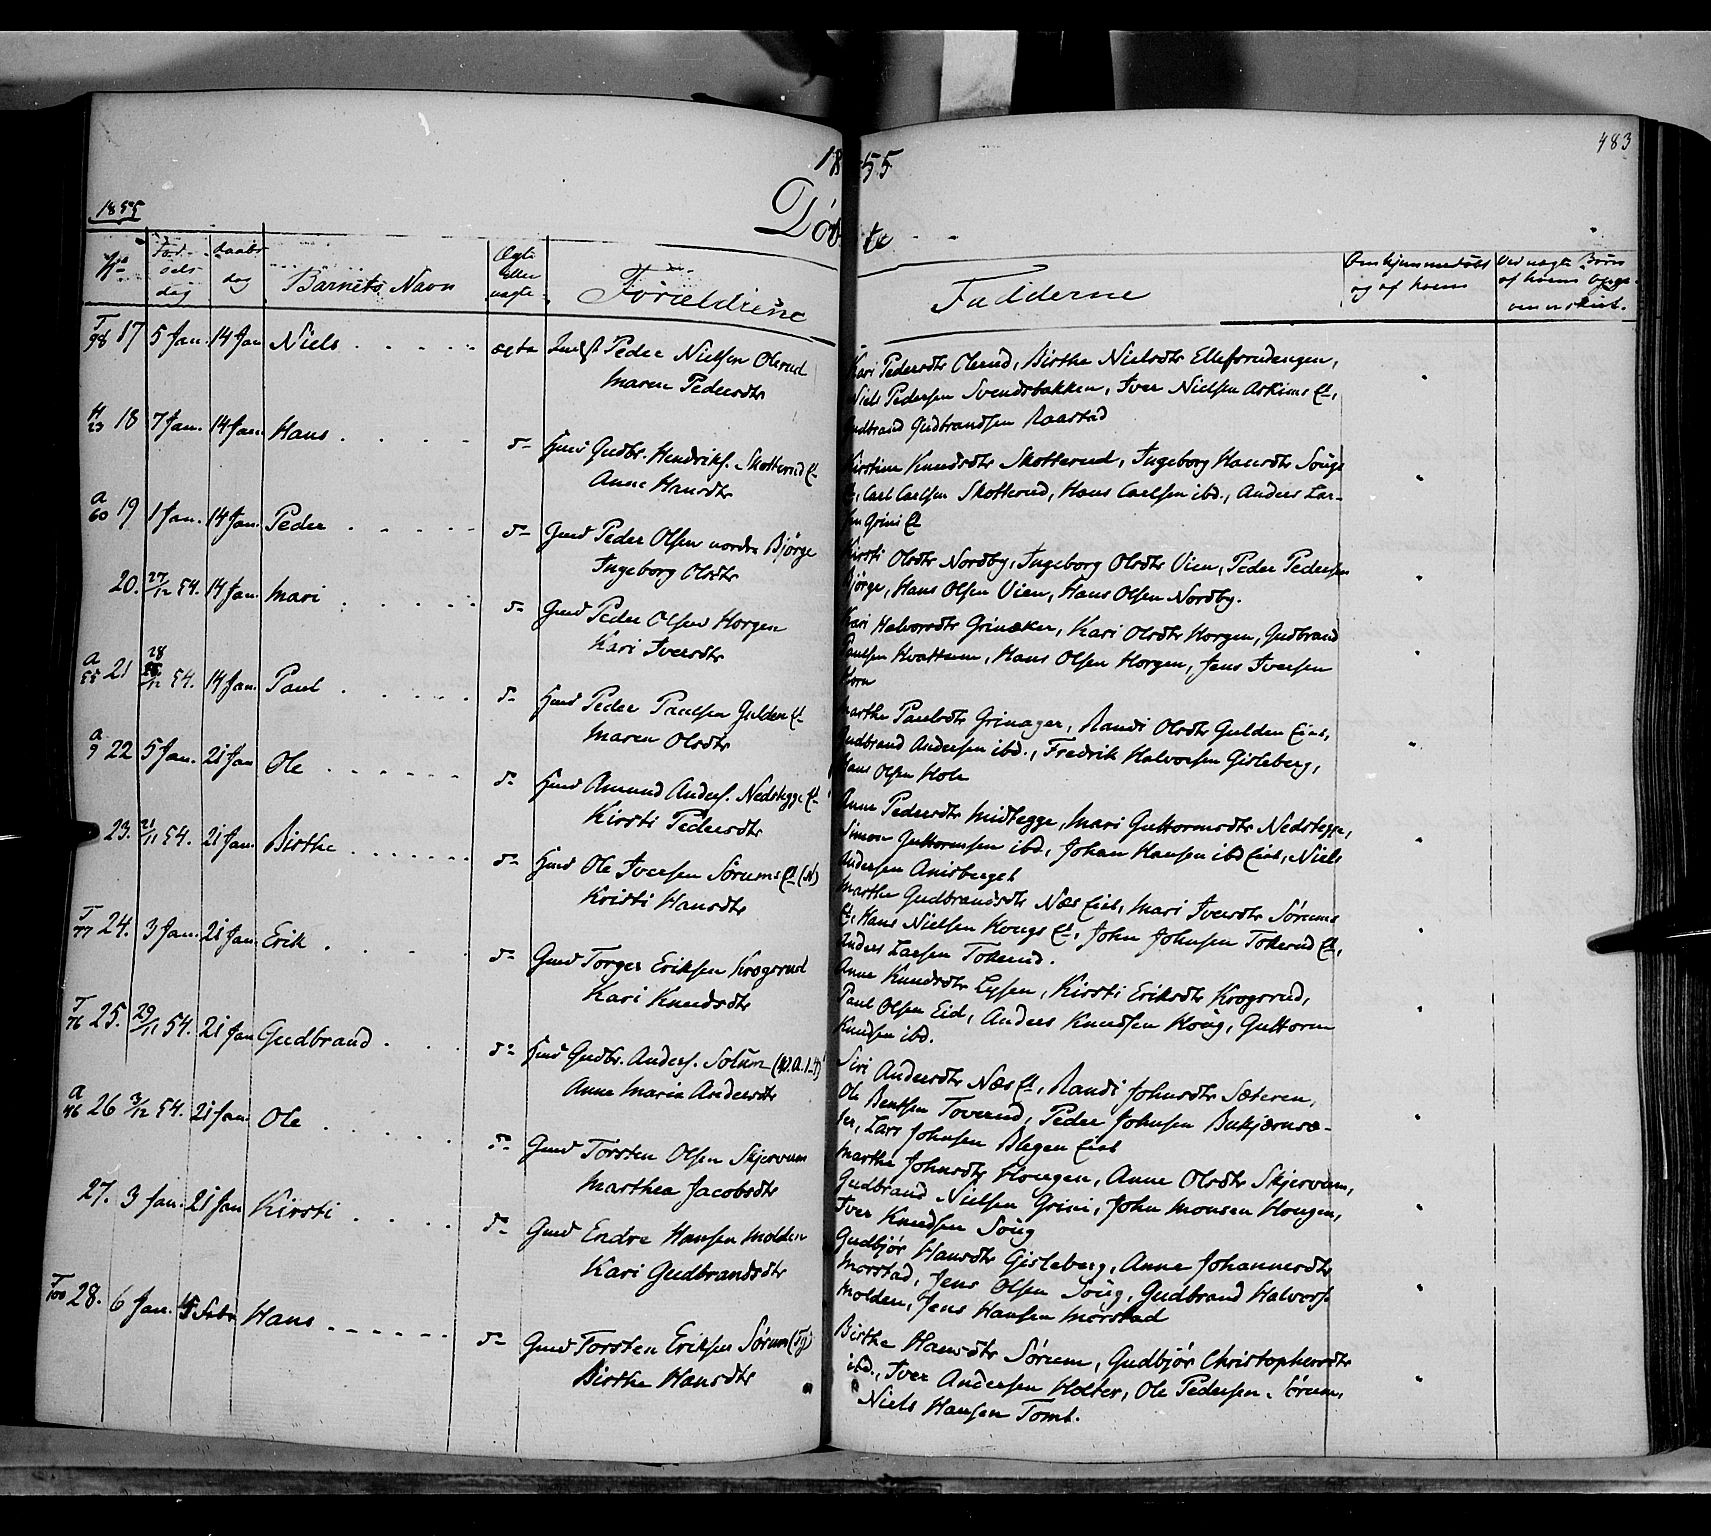 483
1855
1855
Døbte
No
Fød-
sels
dag
Daabs
dag
Barnets Navn
Ægte
eller
uægte
Forældrene
Fadderne
Om hjemmedøbt
og af hvem
Ved uægte Børn
af hvem Opgi-
venen skeet.
T 98 17 5 Jan. 14 Jan Niels ægte Peder Nielsen Olerud
Maren Pedersdtr
Kari Pedersdtr Olerud, Birthe Nielsdtr Ellefsrudengen,
Niels Pedersen Svendsbakken, Iver Nielsen Askims Et,
Gudbrand Gudbrandsen Raastad
H 23 18 7 Jan. 14 Jan. Hans d- Huusm Gudbr. Hendriks. Skotterud Et
Anne Hansdtr
Kirstine Knudsdtr Skotterud, Ingeborg Hansdtr Soug
Et, Carl Carlsen Skotterud, Hans Carlsen ibd., Anders Lar-
sen Grini Et
A 60 19 1 Jan. 14 Jan. Peder d- Gmd Peder Olsen nordre Bjørge
Ingeborg Olsdtr
Kirsti Olsdtr Nordby, Ingeborg Olsdtr Vien, Peder Pedersen
Bjørge, Hans Olsen Vien, Hans Olsen Nordby.
20. 27/12 54. 14 Jan. Mari d- Gmd Peder Olsen Horgen
Kari Iversdtr
Kari Halvorsdtr Grinaker, Kari Olsdtr Horgen, Gudbrand
Paulsen Hvattum, Hans Olsen Horgen, Jens Iversen
Horn
A 55 21 28/12 54. 14 Jan. Paul d- Hmd Peder Paulsen Gulden Et
Maren Olsdtr
Marthe Paulsdtr Grinager, Randi Olsdtr Gulden Eiet,
Gudbrand Andersen ibd., Fredrik Halvorsen Gisleberg,
Hans Olsen Hole
A 9 22 5 Jan. 21 Jan Ole d- Hmd Amund Anders. Nedstegge Et
Kirsti Pedersdtr
Anne Pedersdtr Midtegge, Mari Guttormsdtr Nedstegge,
Simen Guttormsen ibd, Johan Hansen ibd Eiet, Niels
Andersen Amsberget
23. 21/11 54. 21 Jan. Birthe d- Hmd Ole Iversen Sørums Et (N)
Kristi Hansdtr
Marthe Gudbrandsdtr Næs Eiet, Mari Iversdtr Sørums
Et, Hans Nielsen Hougs Et, John Johnsen Tokerud Et,
Anders Larsen Tokerud.
T 77 24. 3 Jan. 21 Jan. Erik d- Gmd Torger Eriksen Krogsrud
Kari Knudsdtr
Anne Knudsdtr Lysen, Kirsti Eriksdtr Krogsrud,
Paul Olsen Eid, Anders Knudsen Houg, Guttorm
Knudsen ibd.
T 76 25. 29/11 54. 21 Jan Gudbrand d- Hmd Gudbr. Anders. Solum
Anne Maria Andersdtr
Siri Andersdtr Næs Et, Randi Johnsdtr Sæteren,
Ole Bentsen Toverud, Peder Johnsen Bukjærnsæ-
ter, Lars Johnsen Blegen Eiet
A 46 26 3/12 54. 21 Jan. Ole d- Gmd Torsten Olsen Skjervum
Marthea Jacobsdtr
Marthe Johnsdtr Hougen, Anne Olsdtr Skjervum,
Gudbrand Nielsen Grini, John Monsen Hougen,
Iver Knudsen Soug
27. 3 Jan. 21 Jan Kirsti d- Gmd Endre Hansen Molden
Kari Gudbrandsdtr
Gudbjør Hansdtr Gisleberg, Anne Johannesdtr
Morstad, Jens Olsen Soug, Gudbrand Halvors.
Molden, Jens Hansen Morstad
T 100 28. 6 Jan. 4 Febr Hans d- Gmd Torsten Eriksen Sørum
Birthe Hansdtr
Birthe Hansdtr Sørum, Gudbjør Christophersdtr
ibd., Iver Andersen Holter, Ole Pedersen Sørum,
Niels Hansen Tomt.